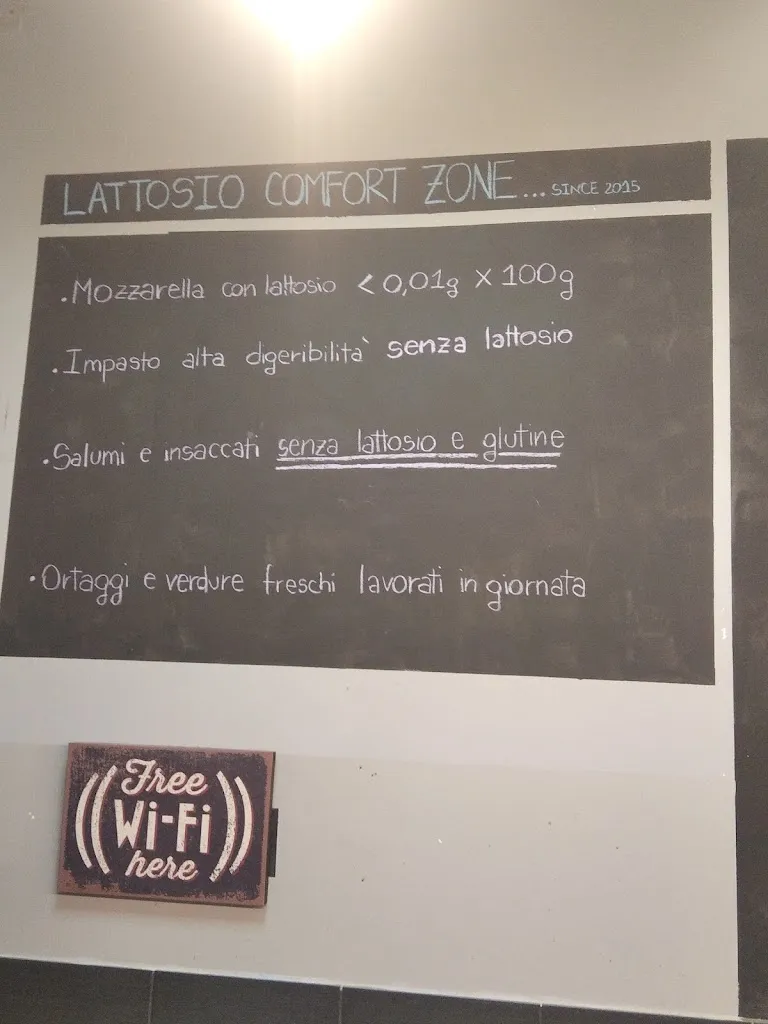 LATTOSIO COMFORT ZONE... SINCE 2015
.Mozzarella con lattosio <0,01g x 100g
.Impasto alta digeribilita` senza lattosio
.Salumi e insaccati senza lattosio e glutine
.Ortaggi e verdure freschi lavorati in giornata
Free
Wi-Fi
here